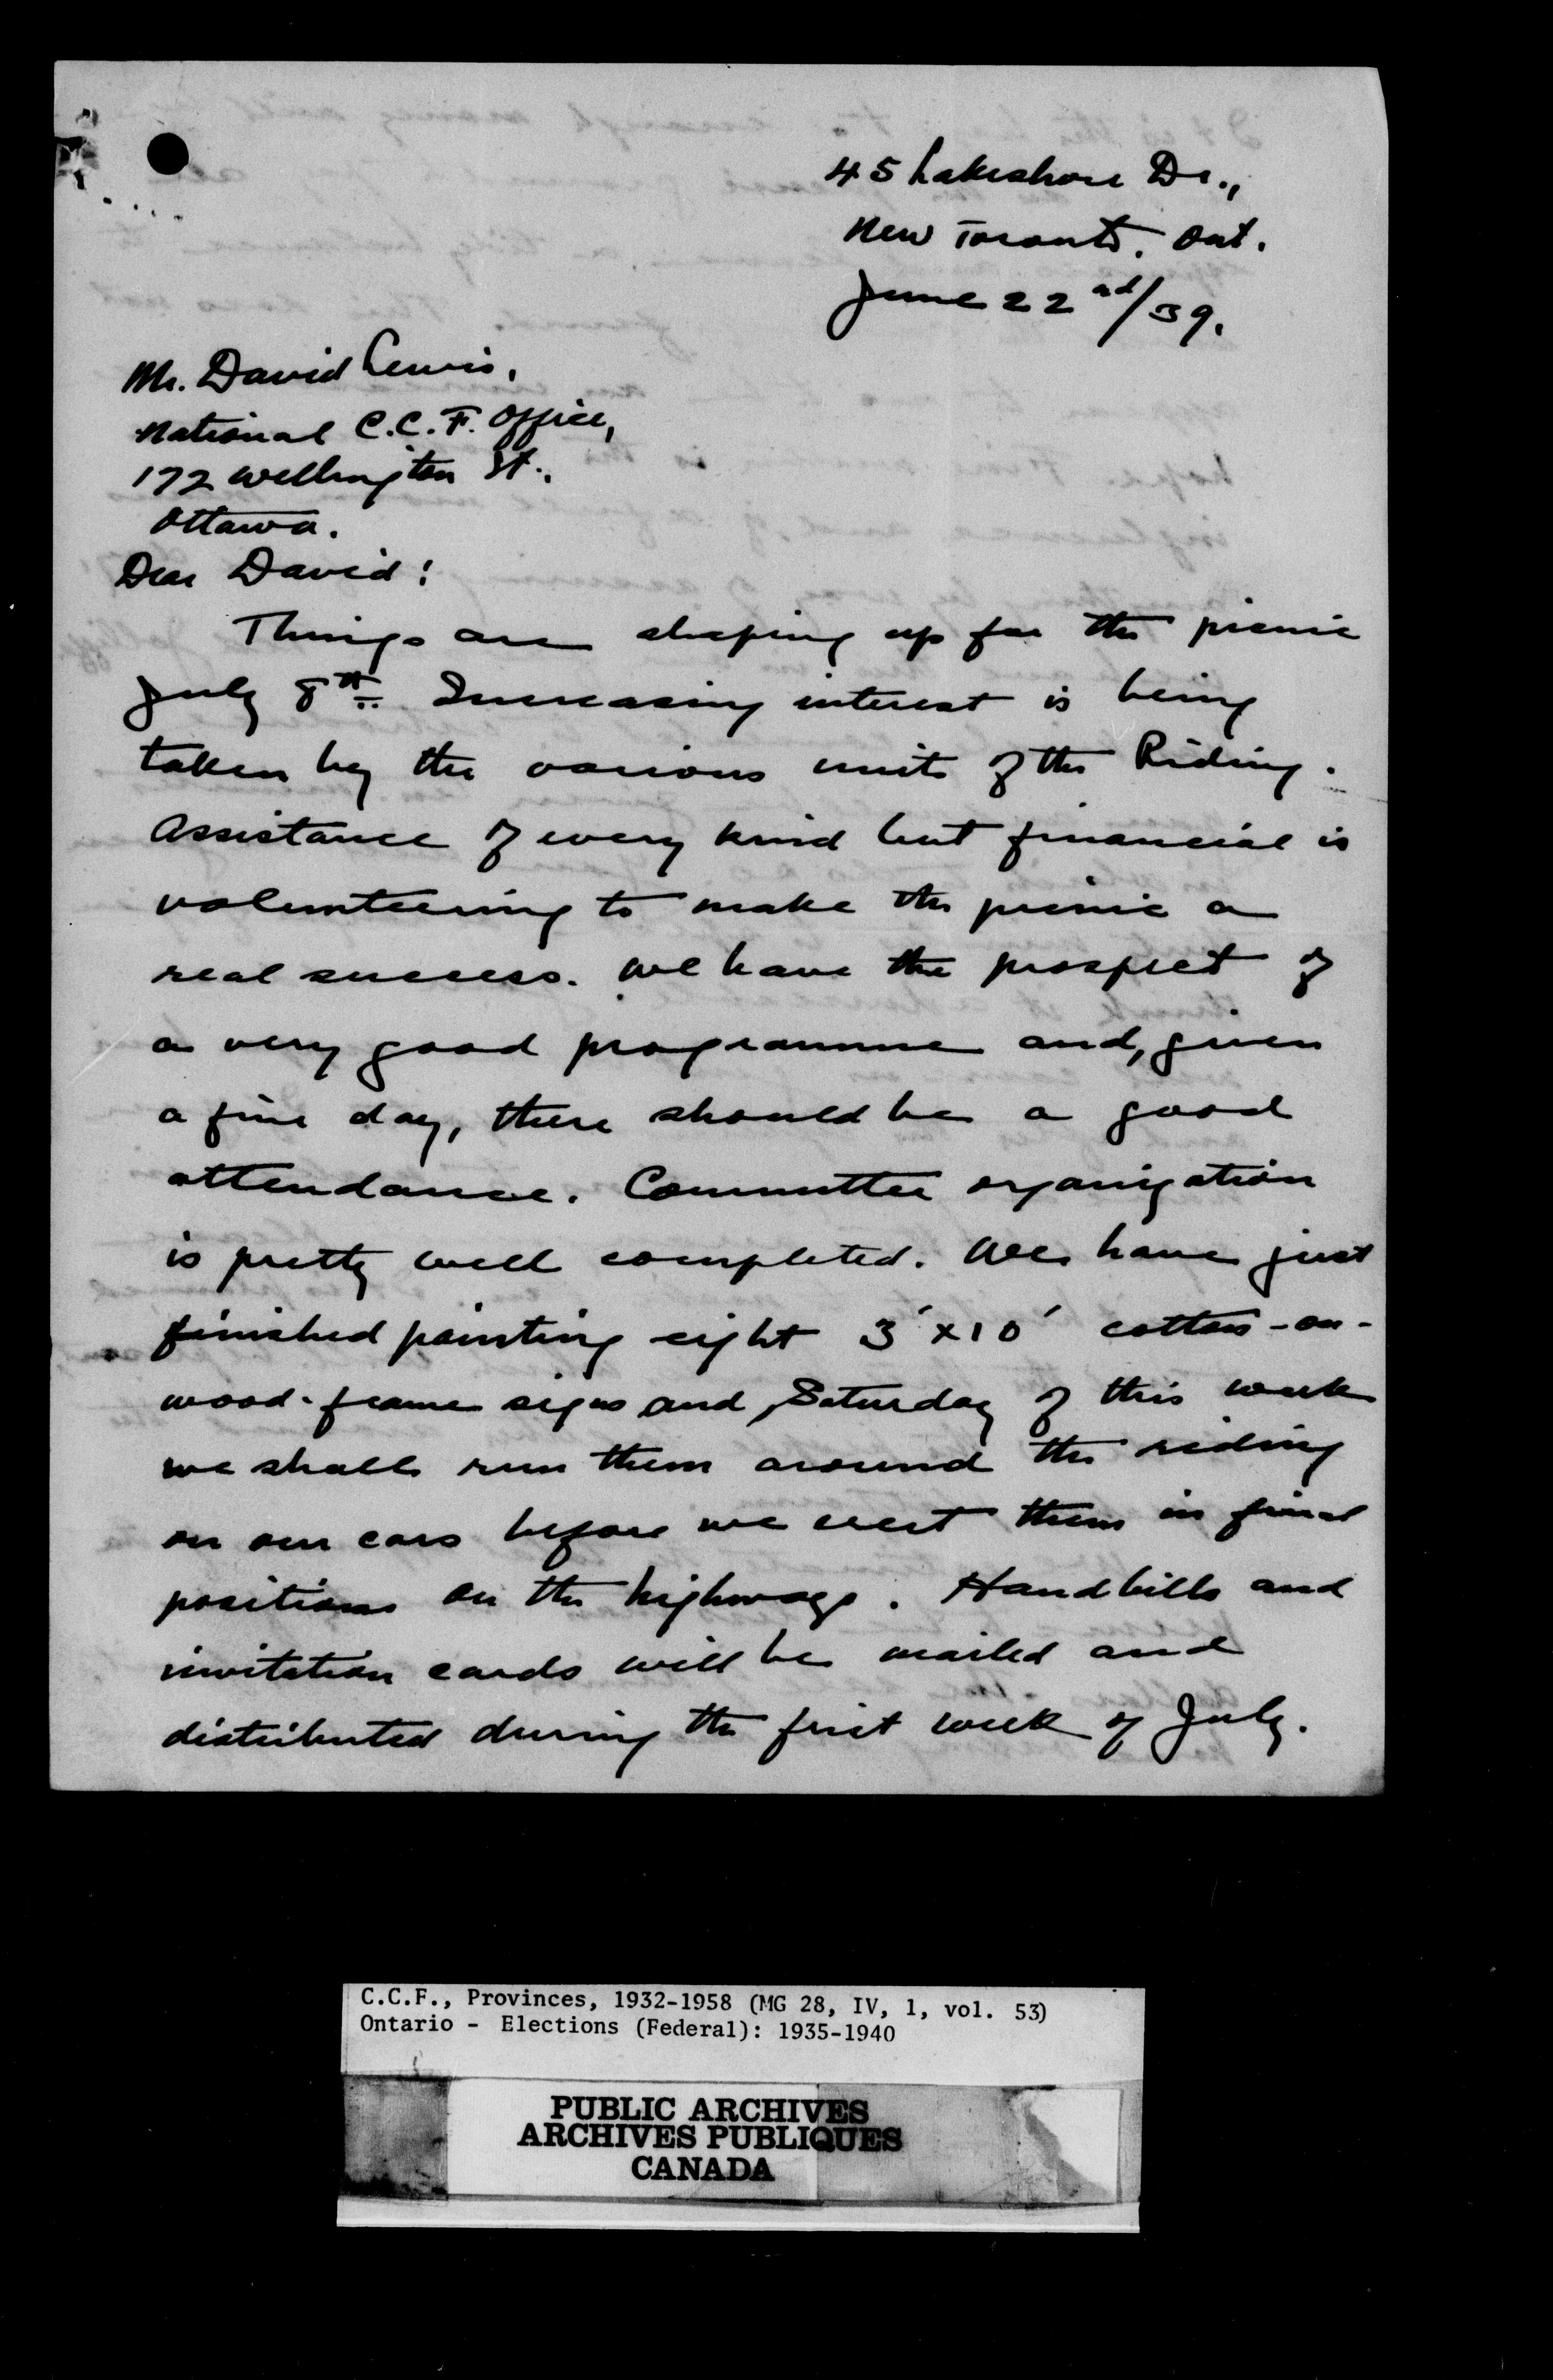 45 Lakeshore Dr.,
New Toronto. Ont.
June 22nd/39.
Mr. David Lewis,
National C.C.F. Office,
172 Wellington St.,
Ottawa.
Dear David:
Things are shaping up for the picnic
July 8th. Increasing interest is being
taken by the various units of the Riding.
Assistance of every kind but financial is
volunteering to make the picnic a
real success. We have the prospect of
a very good programme and, given
a fine day, there should be a good
attendance. Committee organization
is pretty well completed. We have just
finished painting eight 3'x10' cotton-on-
wood-frame signs and, Saturday of this week
we shall run them around the riding
on our cars before we erect them in final
positions on the highways. Handbills and
invitation cards will be mailed and
distributed during the first week of July.
C.C.F., Provinces, 1932-1958 (MG 28, IV, 1, vol. 53)
Ontario - Elections (Federal): 1935-1940
PUBLIC ARCHIVES
ARCHIVES PUBLIQUES
CANADA